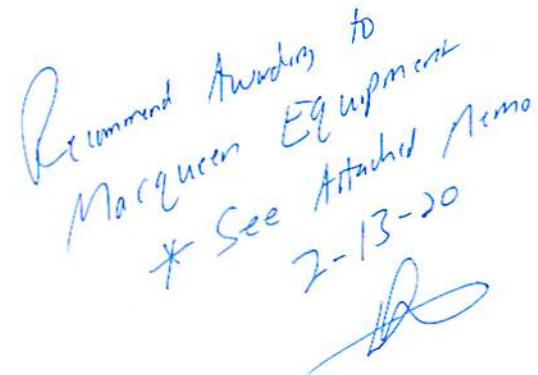 Recommend Awarding to
Macqueen Equipment
* See Attached Memo
2-13-20